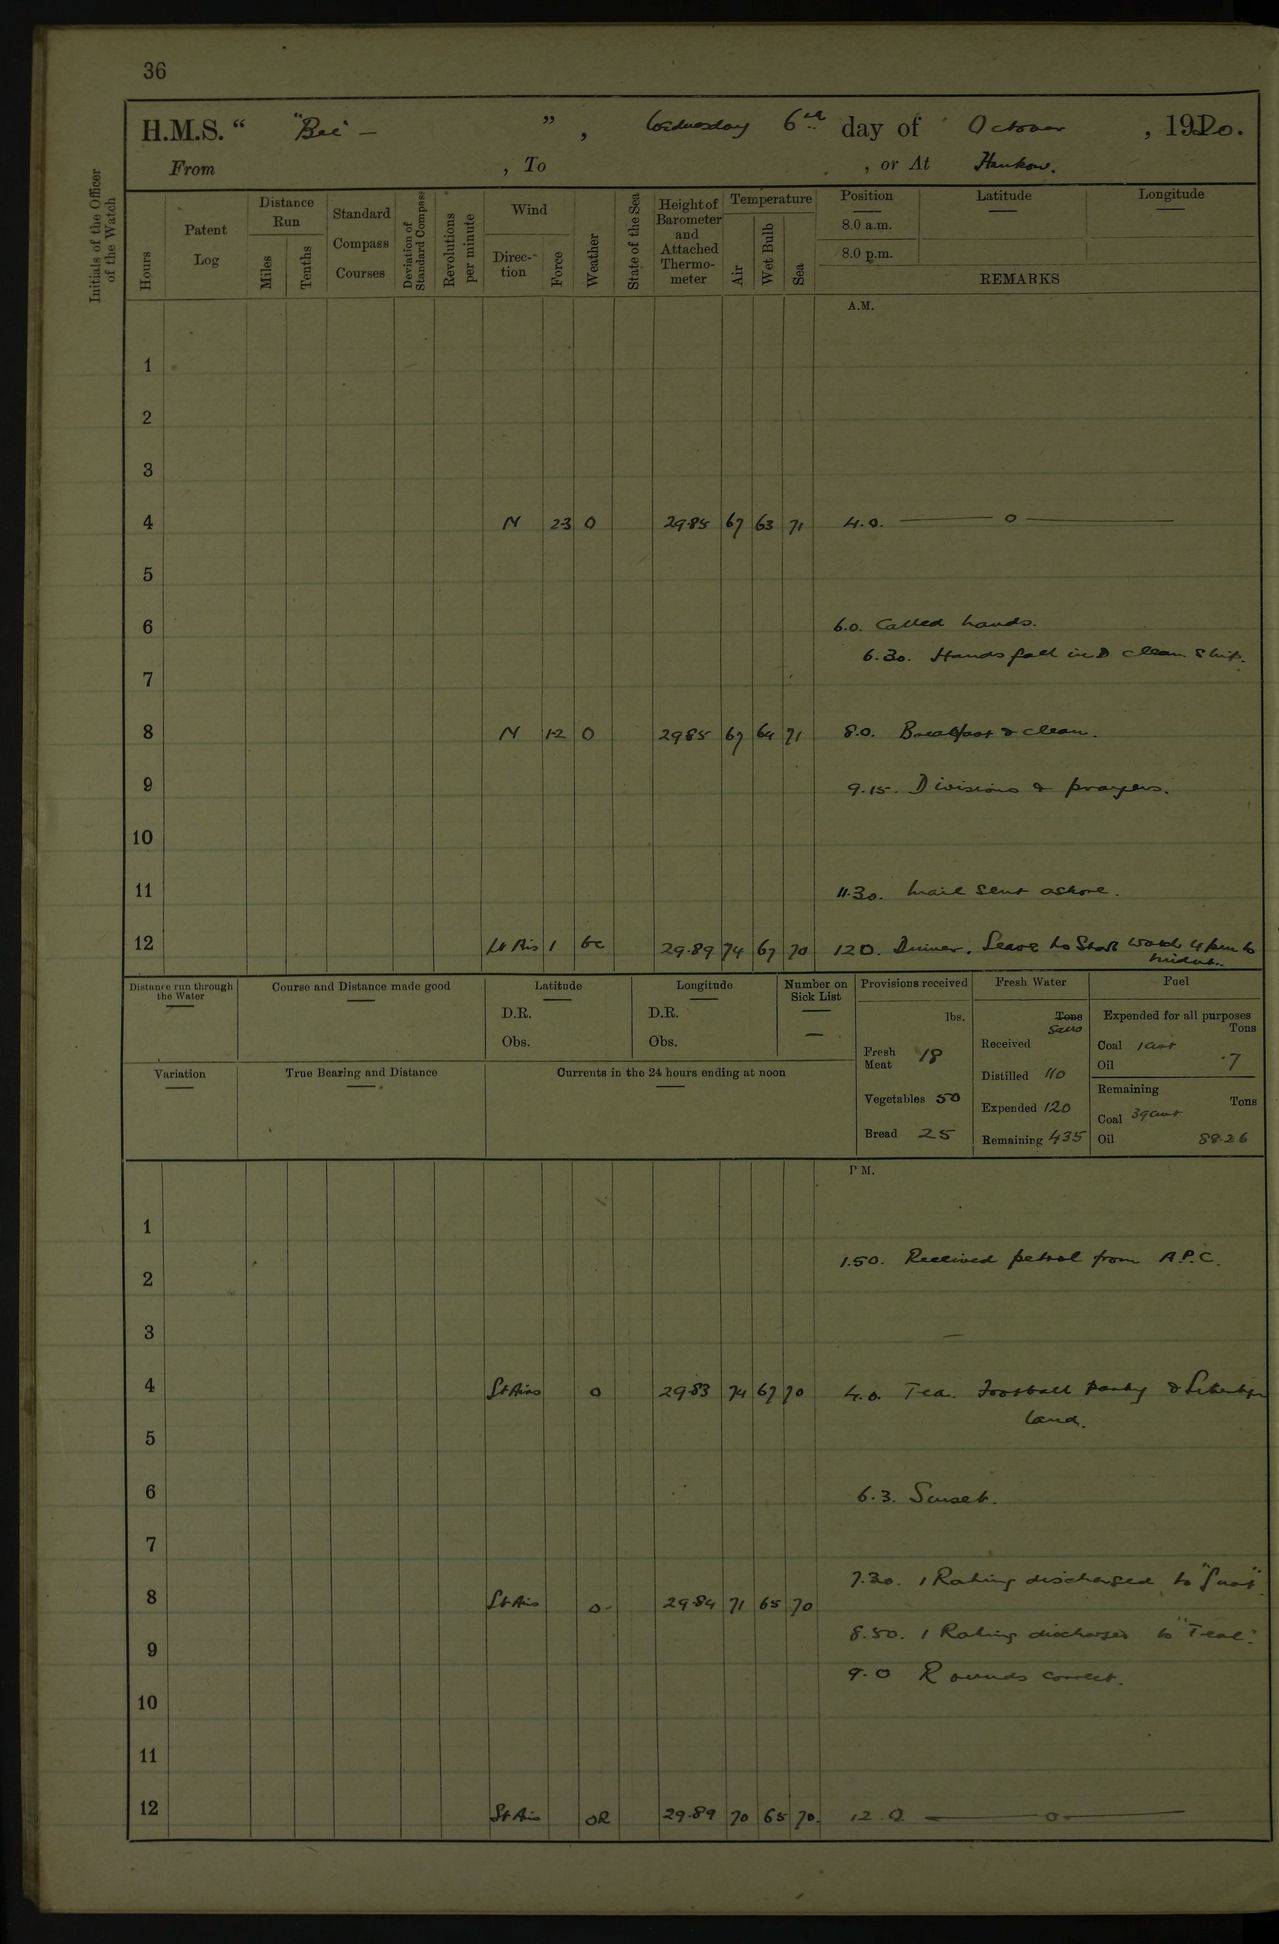 36
H.M.S. “ "Bee" — ” , Wednesday 6th day of October , 1920.
From , To , or At Hankow.
Initials of the Officer of the Watch
Hours
Patent Log
Distance Run
Miles
Tenths
Standard Compass Courses
Deviation of Standard Compass
Revolutions per minute
Wind
Direc- tion
Force
Weather
State of the Sea
Height of Barometer and Attached Thermo- meter
Temperature
Air
Wet Bulb
Sea
Position
8.0 a.m.
8.0 p.m.
Latitude
Longitude
REMARKS
A.M.
1
2
3
4 N 2-3 O 29.85 67 63 71 4.0. — o —
5
6 6.0. Called hands.
6.30. Hands fall in & clean ship.
7
8 N 1-2 O 29.85 67 64 71 8.0. Breakfast & clean.
9 9.15. Divisions & prayers.
10
11 11.30. Mail sent ashore.
12 Lt Airs 1 bc 29.89 74 67 70 12.0. Dinner. Leave to Starb watch 4 pm to
midnt.
Distance run through the Water
Course and Distance made good
Latitude
D.R.
Obs.
Longitude
D.R.
Obs.
Number on Sick List
—
Variation
True Bearing and Distance
Currents in the 24 hours ending at noon
Provisions received
lbs.
Fresh Meat 18
Vegetables 50
Bread 25
Fresh Water
Tons
Received
Distilled 110
Expended 120
Remaining 435
Fuel
Expended for all purposes
Tons
Coal 1 cwt
Oil .7
Remaining
Tons
Coal 39 cwt
Oil 88.26
P.M.
1
1.50. Received petrol from A.P.C.
2
3
4 Lt Airs O 29.83 74 67 70 4.0. Tea. Football party &
land.
5
6 6.3. Sunset.
7
7.30. 1 Rating discharged to
8 Lt Airs O 29.84 71 65 70
8.50. 1 Rating discharged to "Teal".
9 9.0 Rounds correct.
10
11
12 Lt Airs OR 29.89 70 65 70. 12.0 — o —